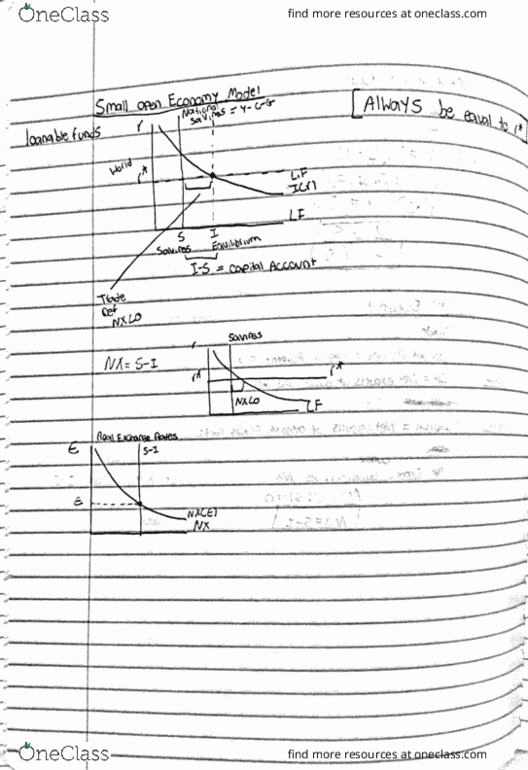 OneClass
find more resources at oneclass.com
Small open Economy Model
[Always be equal to r*]
National
Savings = Y-C-G
loanable funds
r
World
r*
LF
I(r)
LF
S
I
Savings
Equilibrium
I-S = Capital Account
Trade
NX<0
Savings
NX = S-I
r*
r*
NX<0
LF
Real Exchange Rates
E
S-I
E
NX(E)
NX
OneClass
find more resources at oneclass.com